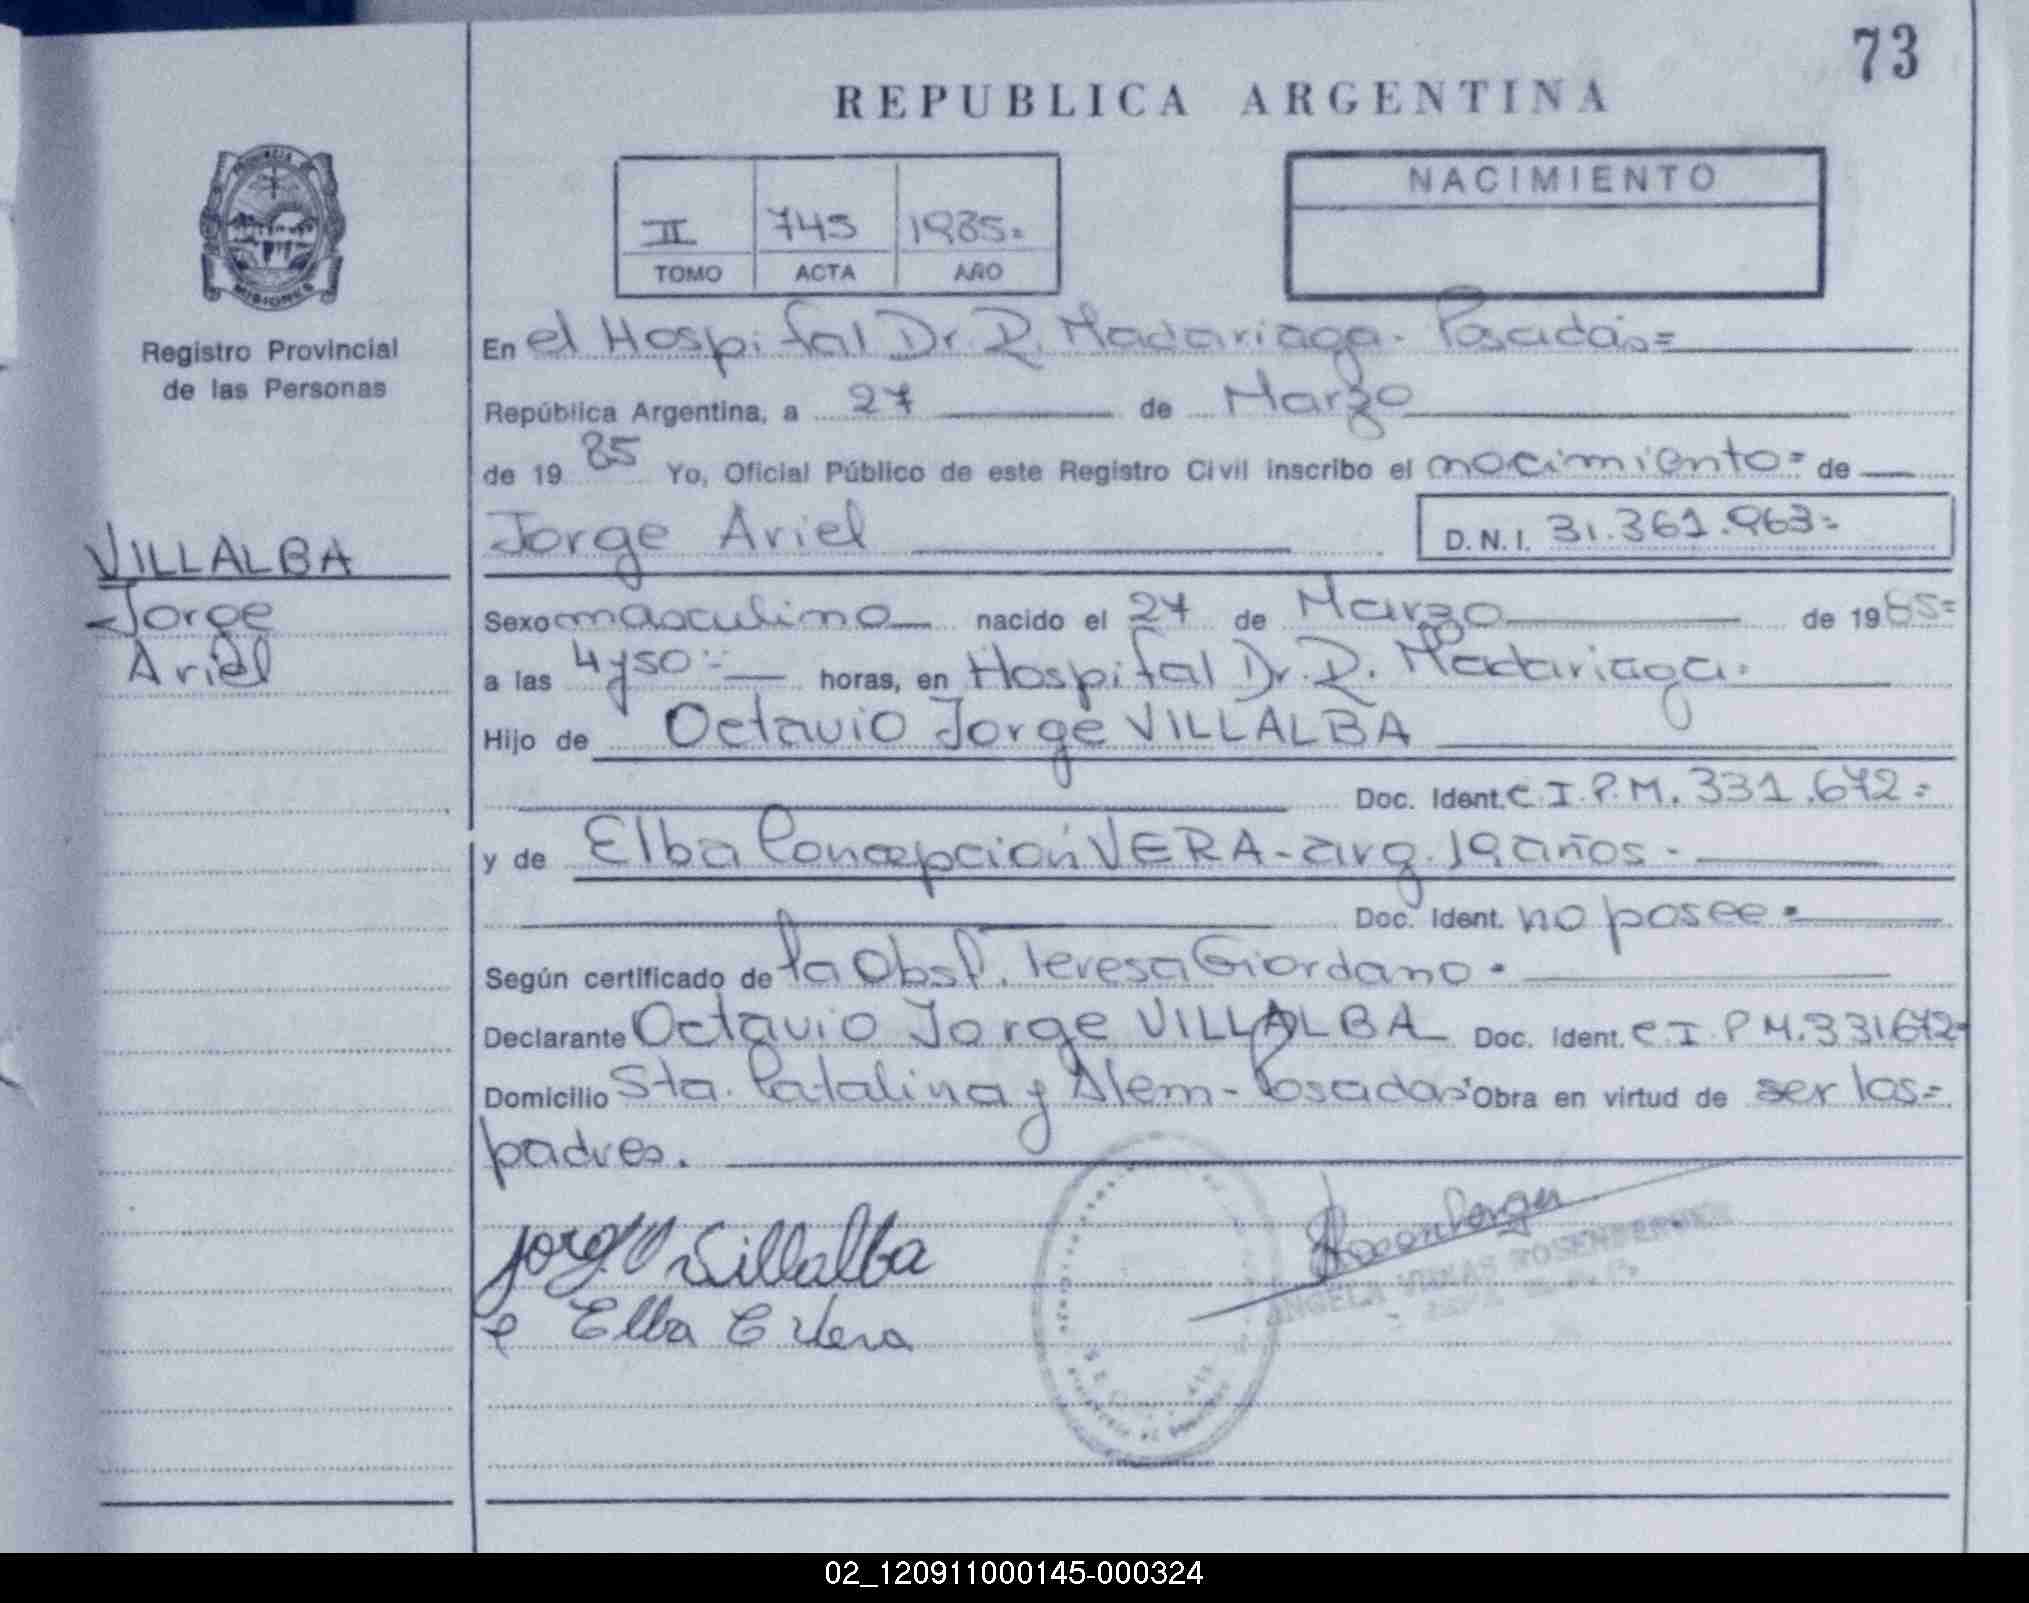 73
REPUBLICA ARGENTINA
PROVINCIA DE
MISIONES
Registro Provincial
de las Personas
II 745 1985=
TOMO ACTA AÑO
NACIMIENTO
En el Hospital Dr. R. Madariaga. Posadas=
República Argentina, a 27 de Marzo
de 1985 Yo, Oficial Público de este Registro Civil inscribo el nacimiento= de
VILLALBA
Jorge
Ariel
Jorge Ariel D.N.I. 31.361.963=
Sexo masculino nacido el 27 de Marzo de 1985=
a las 4 y 50=- horas, en Hospital Dr. R. Madariaga.
Hijo de Octavio Jorge VILLALBA
Doc. Ident. C.I.P.M. 331.672=
y de Elba Concepción VERA-arg. 19 años-
Doc. Ident. no posee.
Según certificado de la Obst. Teresa Giordano.
Declarante Octavio Jorge VILLALBA Doc. Ident. C.I.P.M. 331.672=
Domicilio Sta. Catalina y Alem-Posadas Obra en virtud de ser los=
padres.
Jorge O Villalba
Elba C Vera
Rosenberger
ANGELA ROSENBERGER
02_120911000145-000324